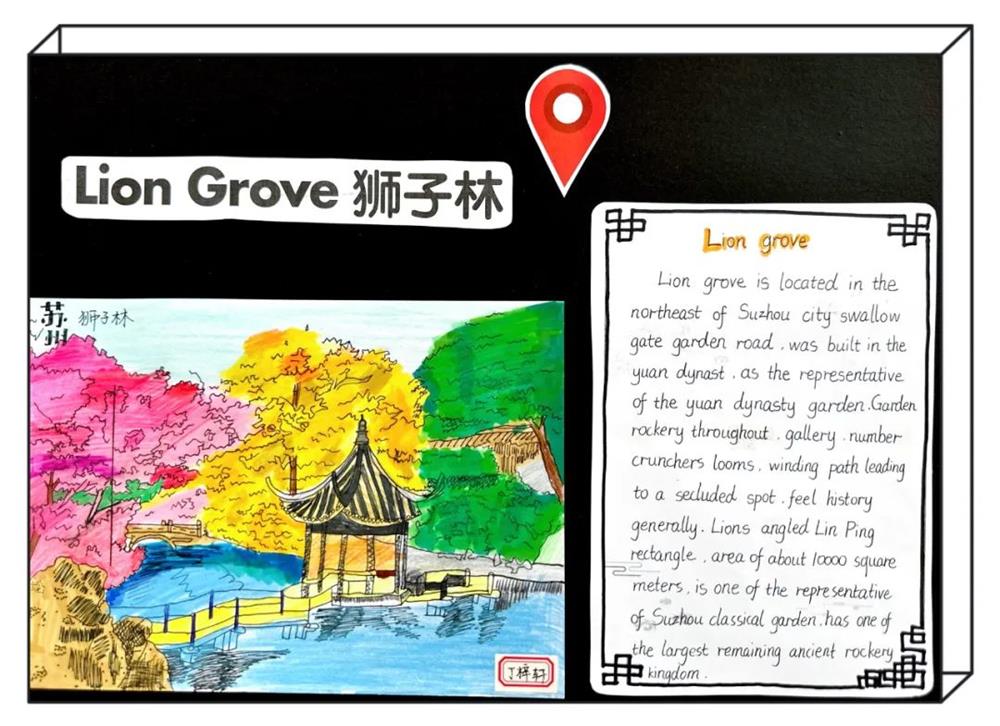 Lion Grove 狮子林
苏州
狮子林
丁梓轩
Lion grove
Lion grove is located in the
northeast of Suzhou city swallow
gate garden road . was built in the
yuan dynast . as the representative
of the yuan dynasty garden.Garden
rockery throughout . gallery . number
crunchers looms . winding path leading
to a secluded spot . feel history
generally . Lions angled Lin Ping
rectangle . area of about 10000 square
meters . is one of the representative
of Suzhou classical garden.has one of
the largest remaining ancient rockery
kingdom .